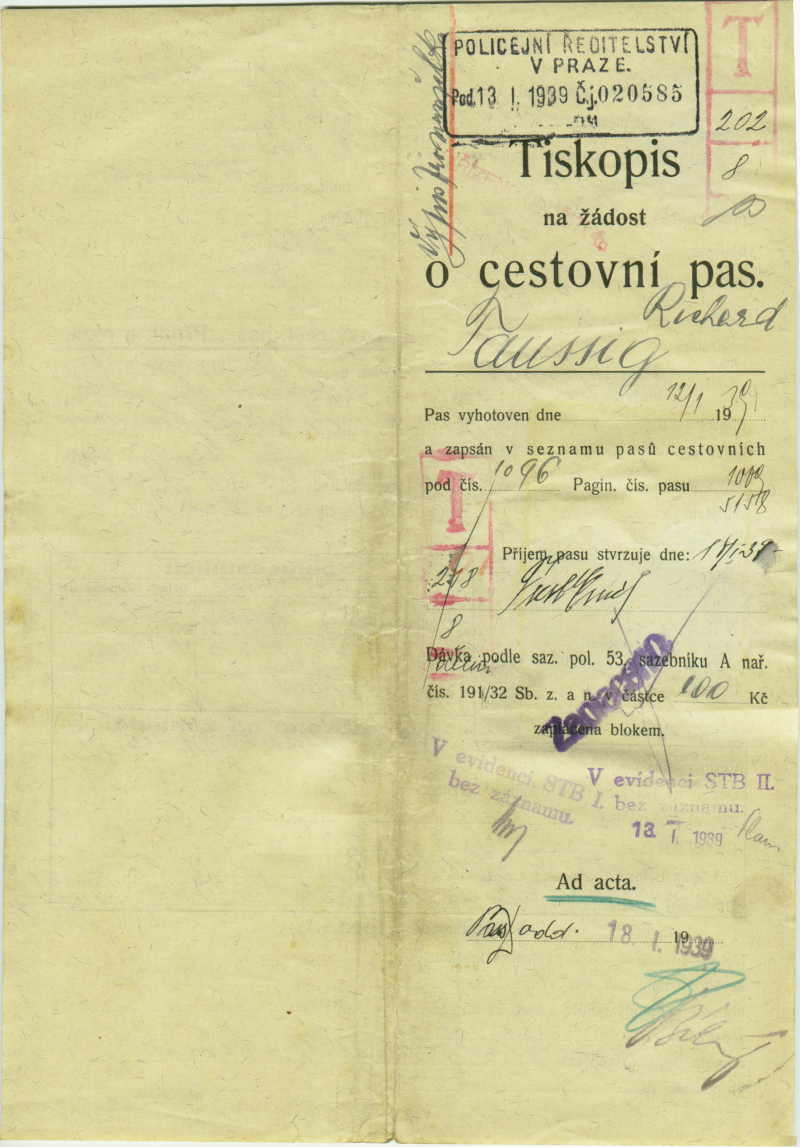 POLICEJNÍ ŘEDITELSTVÍ
V PRAZE.
Pod. 13 I. 1939 Č.j. 020585
T
202
8
Tiskopis
na žádost
o cestovní pas.
Richard
Taussig
Pas vyhotoven dne 12/1 1939
a zapsán v seznamu pasů cestovních
pod čís. 1096 Pagin. čís. pasu 1009
5158
T
Příjem pasu stvrzuje dne:
8
Dávka podle saz. pol. 53, sazebníku A nař.
čís. 191/32 Sb. z. a n. v částce 100 Kč
zaplacena blokem.
V evidenci STB I.
bez záznamu.
V evidenci STB II.
bez záznamu.
13 I. 1939
Ad acta.
odd. 18 I. 1939
19